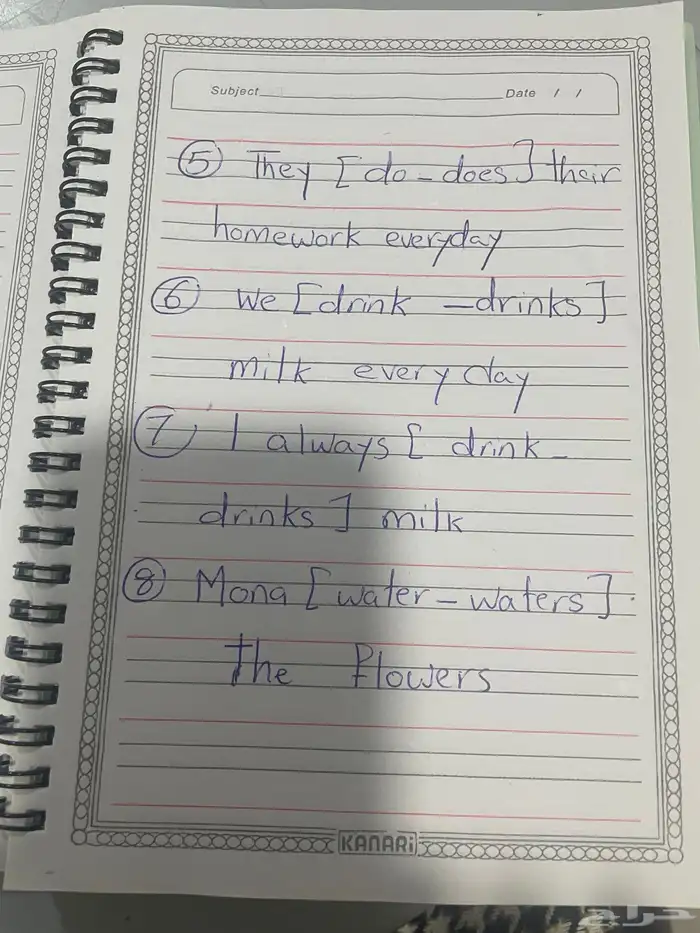 Subject Date / /
⑤ They [do - does] their
homework everyday
⑥ We [drink - drinks]
milk every day
⑦ I always [ drink -
drinks ] milk
⑧ Mona [water - waters].
the Flowers
KANARi
حراج